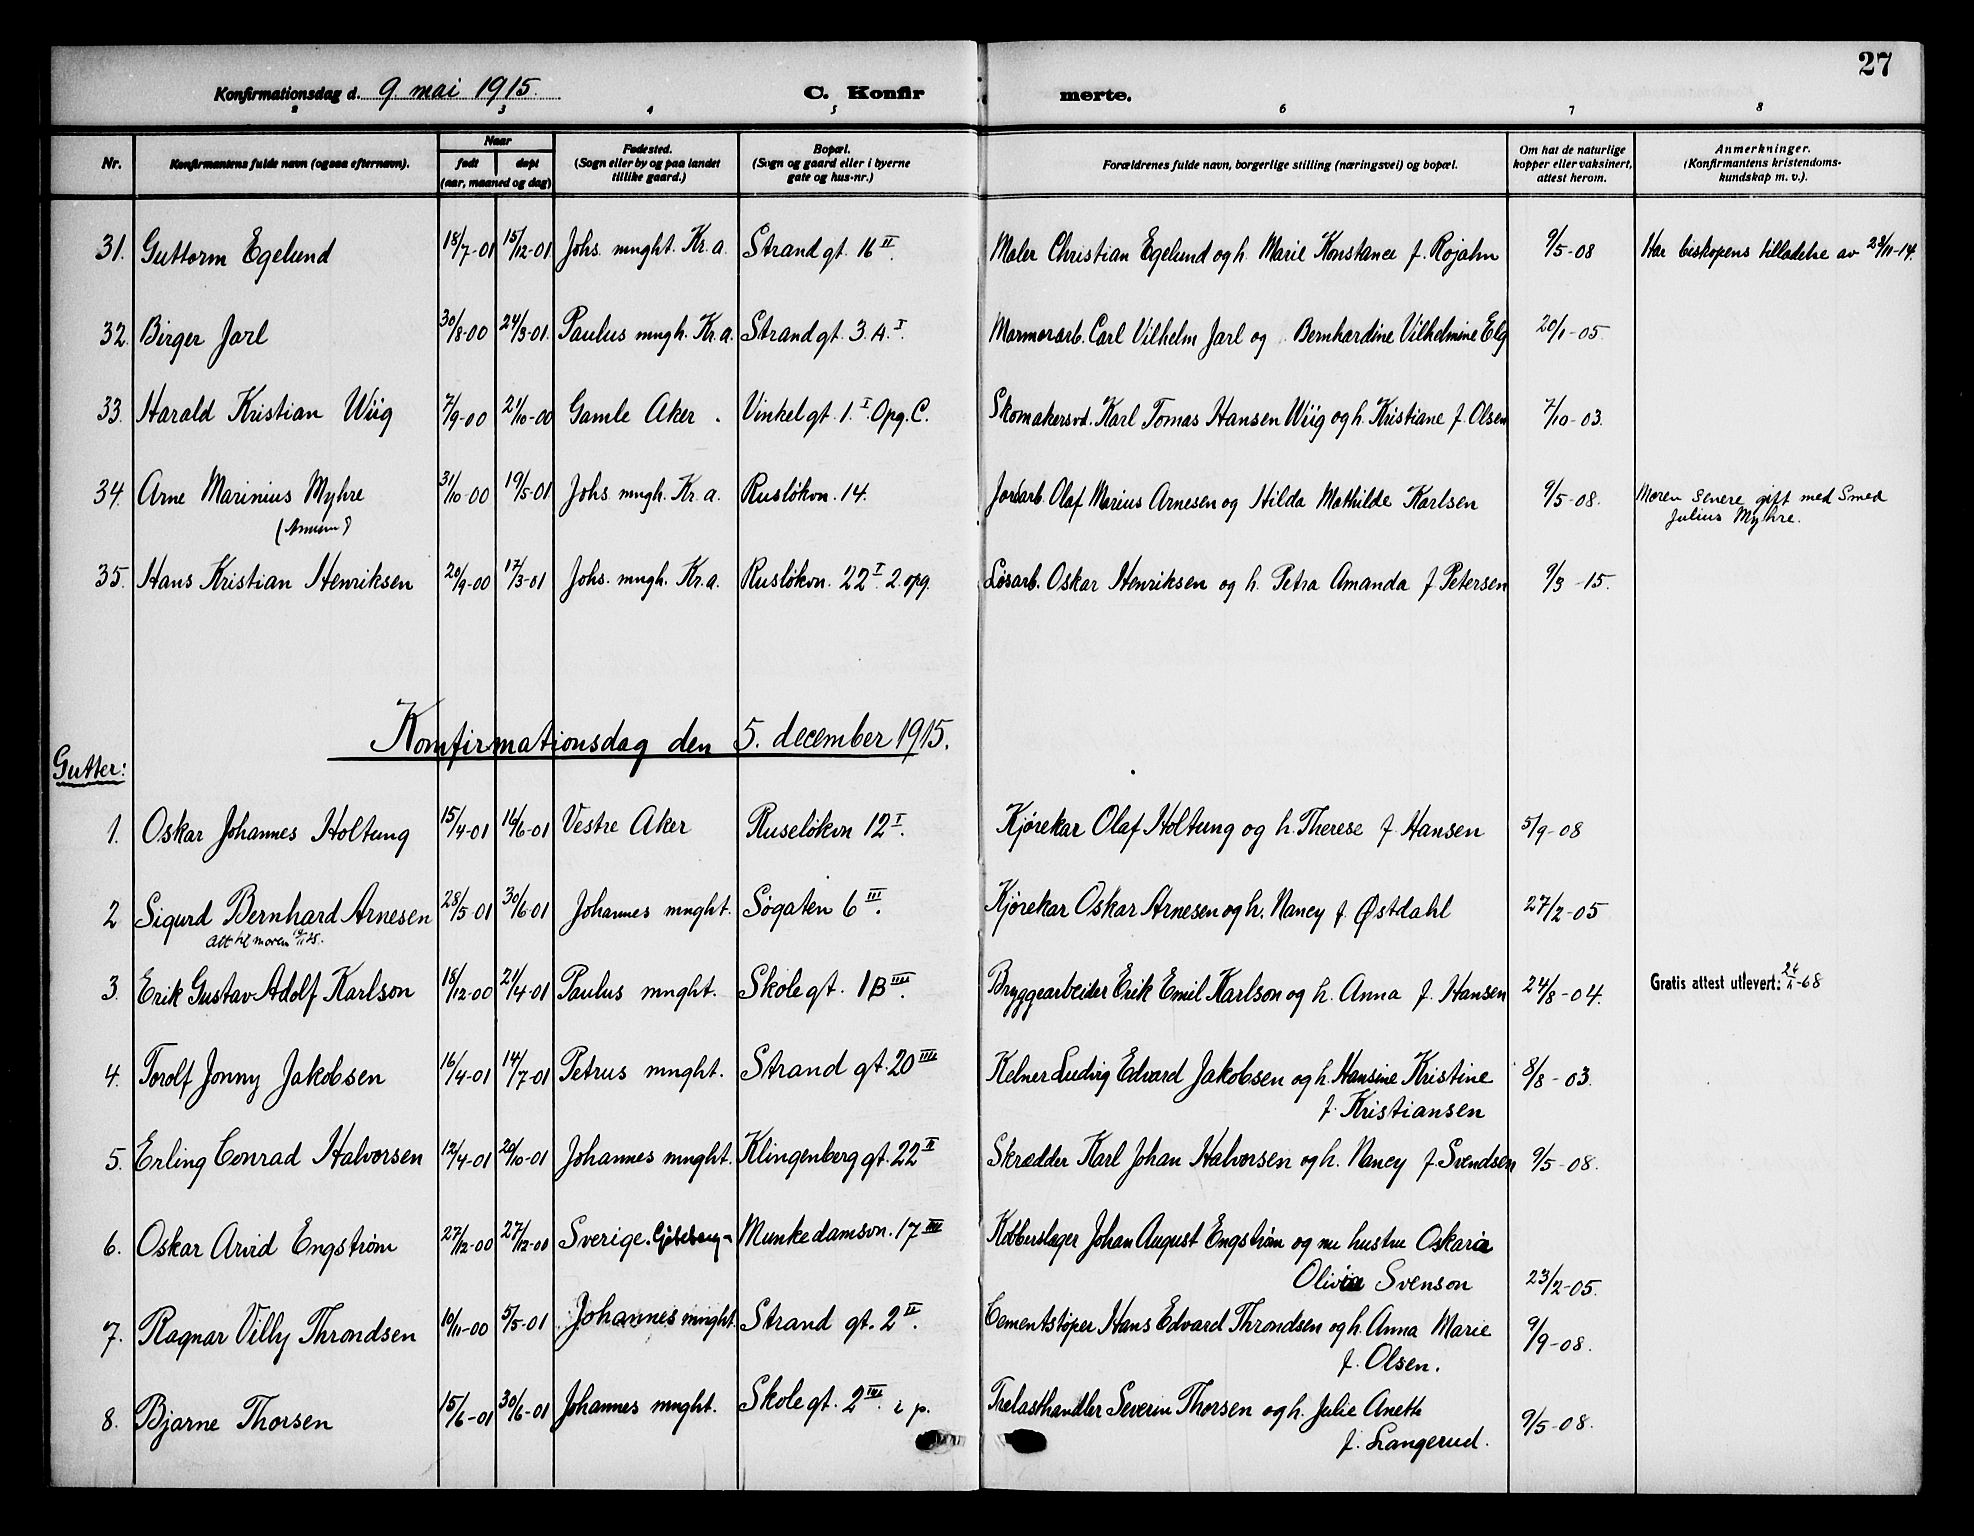 27
Konfirmationsdag d. 9. mai 1915. C. Konfirmerte.
2 3 4 5 6 7 8
Nr. Konfirmantens fulde navn (ogsaa efternavn). Naar født døpt (aar, maaned og dag) Fødested. (Sogn eller by og paa landet tillike gaard.) Bopæl. (Sogn og gaard eller i byerne gate og hus-nr.) Forældrenes fulde navn, borgerlige stilling (næringsvei) og bopæl. Om hat de naturlige kopper eller vaksinert, attest herom. Anmerkninger. (Konfirmantens kristendoms-kundskap m. v.).
31. Guttorm Egelund 18/7-01 15/12-01 Johs. mnght. Kr.a. Strandgt. 16 II. Maler Christian Egelund og h. Marie Konstance f. Rojahn 9/5-08 Har biskopens tilladelse av 28/11-14.
32. Birger Jarl 30/8-00 24/3-01. Paulus mngh. Kr.a. Strandgt. 3.A. I. Marmorarb. Carl Vilhelm Jarl og Bernhardine Vilhelmine Elg 20/1-05.
33. Harald Kristian Wiig 7/9-00 21/10-00 Gamle Aker. Vinkelgt. 1. I Opg. C. Skomakersvd. Karl Tomas Hansen Wiig og h. Kristiane f. Olsen 7/10-03.
34. Arne Marinius Myhre 31/10-00 19/5-01 Johs. mngh. Kr.a. Rusløkvn. 14. Jordarb. Olaf Marius Arnesen og Hilda Mathilde Karlsen 9/5-08. Moren senere gift med Smed
Julius Myhre.
35. Hans Kristian Henriksen 20/9-00 17/3-01 Johs. mngh. Kr.a. Rusløkvn. 22 I 2. opg. Løsarb. Oskar Henriksen og h. Petra Amanda f Petersen 9/3-15.
Komfirmationsdag den 5. december 1915.
Gutter:
1. Oskar Johannes Holtung 15/4-01 16/6-01 Vestre Aker Ruseløkvn 12 I. Kjørekar Olaf Holtung og h. Therese f. Hansen 5/9-08
2 Sigurd Bernhard Arnesen 28/5-01 30/6-01 Johannes mnght. Søgaten 6 III. Kjørekar Oskar Arnesen og h. Nancy f. Østdahl 27/2-05
Att til moren
3. Erik Gustav Adolf Karlson 18/12-00 21/4-01 Paulus mnght. Skolegt. 1B III. Bryggearbeider Erik Emil Karlson og h. Anna f. Hansen 24/8-04. Gratis attest utlevert: 24/1-68
4. Torolf Jonny Jakobsen 16/4-01 14/7-01 Petrus mnght. Strand gt. 20 IIII Kelner Ludvig Edvard Jakobsen og h. Hansine Kristine 8/8-03.
f. Kristiansen
5. Erling Conrad Halvorsen 12/4-01 20/10-01 Johannes mnght. Klingenberg gt. 22 II Skrædder Karl Johan Halvorsen og h. Nancy f. Svendsen 9/5-08.
6. Oskar Arvid Engstrøm 27/12-00 27/12-00 Sverige. Gøteborg- Munkedamsvn. 17 III Kobberslager Johan August Engstrøm og nu hustru Oskaria
Olivia Svenson 23/2-05.
7. Ragnar Villy Throndsen 10/11-00 5/5-01 Johannes mnght. Strand gt. 2 II. Cementstøper Hans Edvard Throndsen og h. Anna Marie 9/9-08.
f. Olsen.
8. Bjarne Thorsen 15/6-01 30/6-01 Johannes mnght. Skolegt. 2 III. i p. Trelasthandler Severin Thorsen og h. Julie Anette 9/5-08.
f. Langerud.